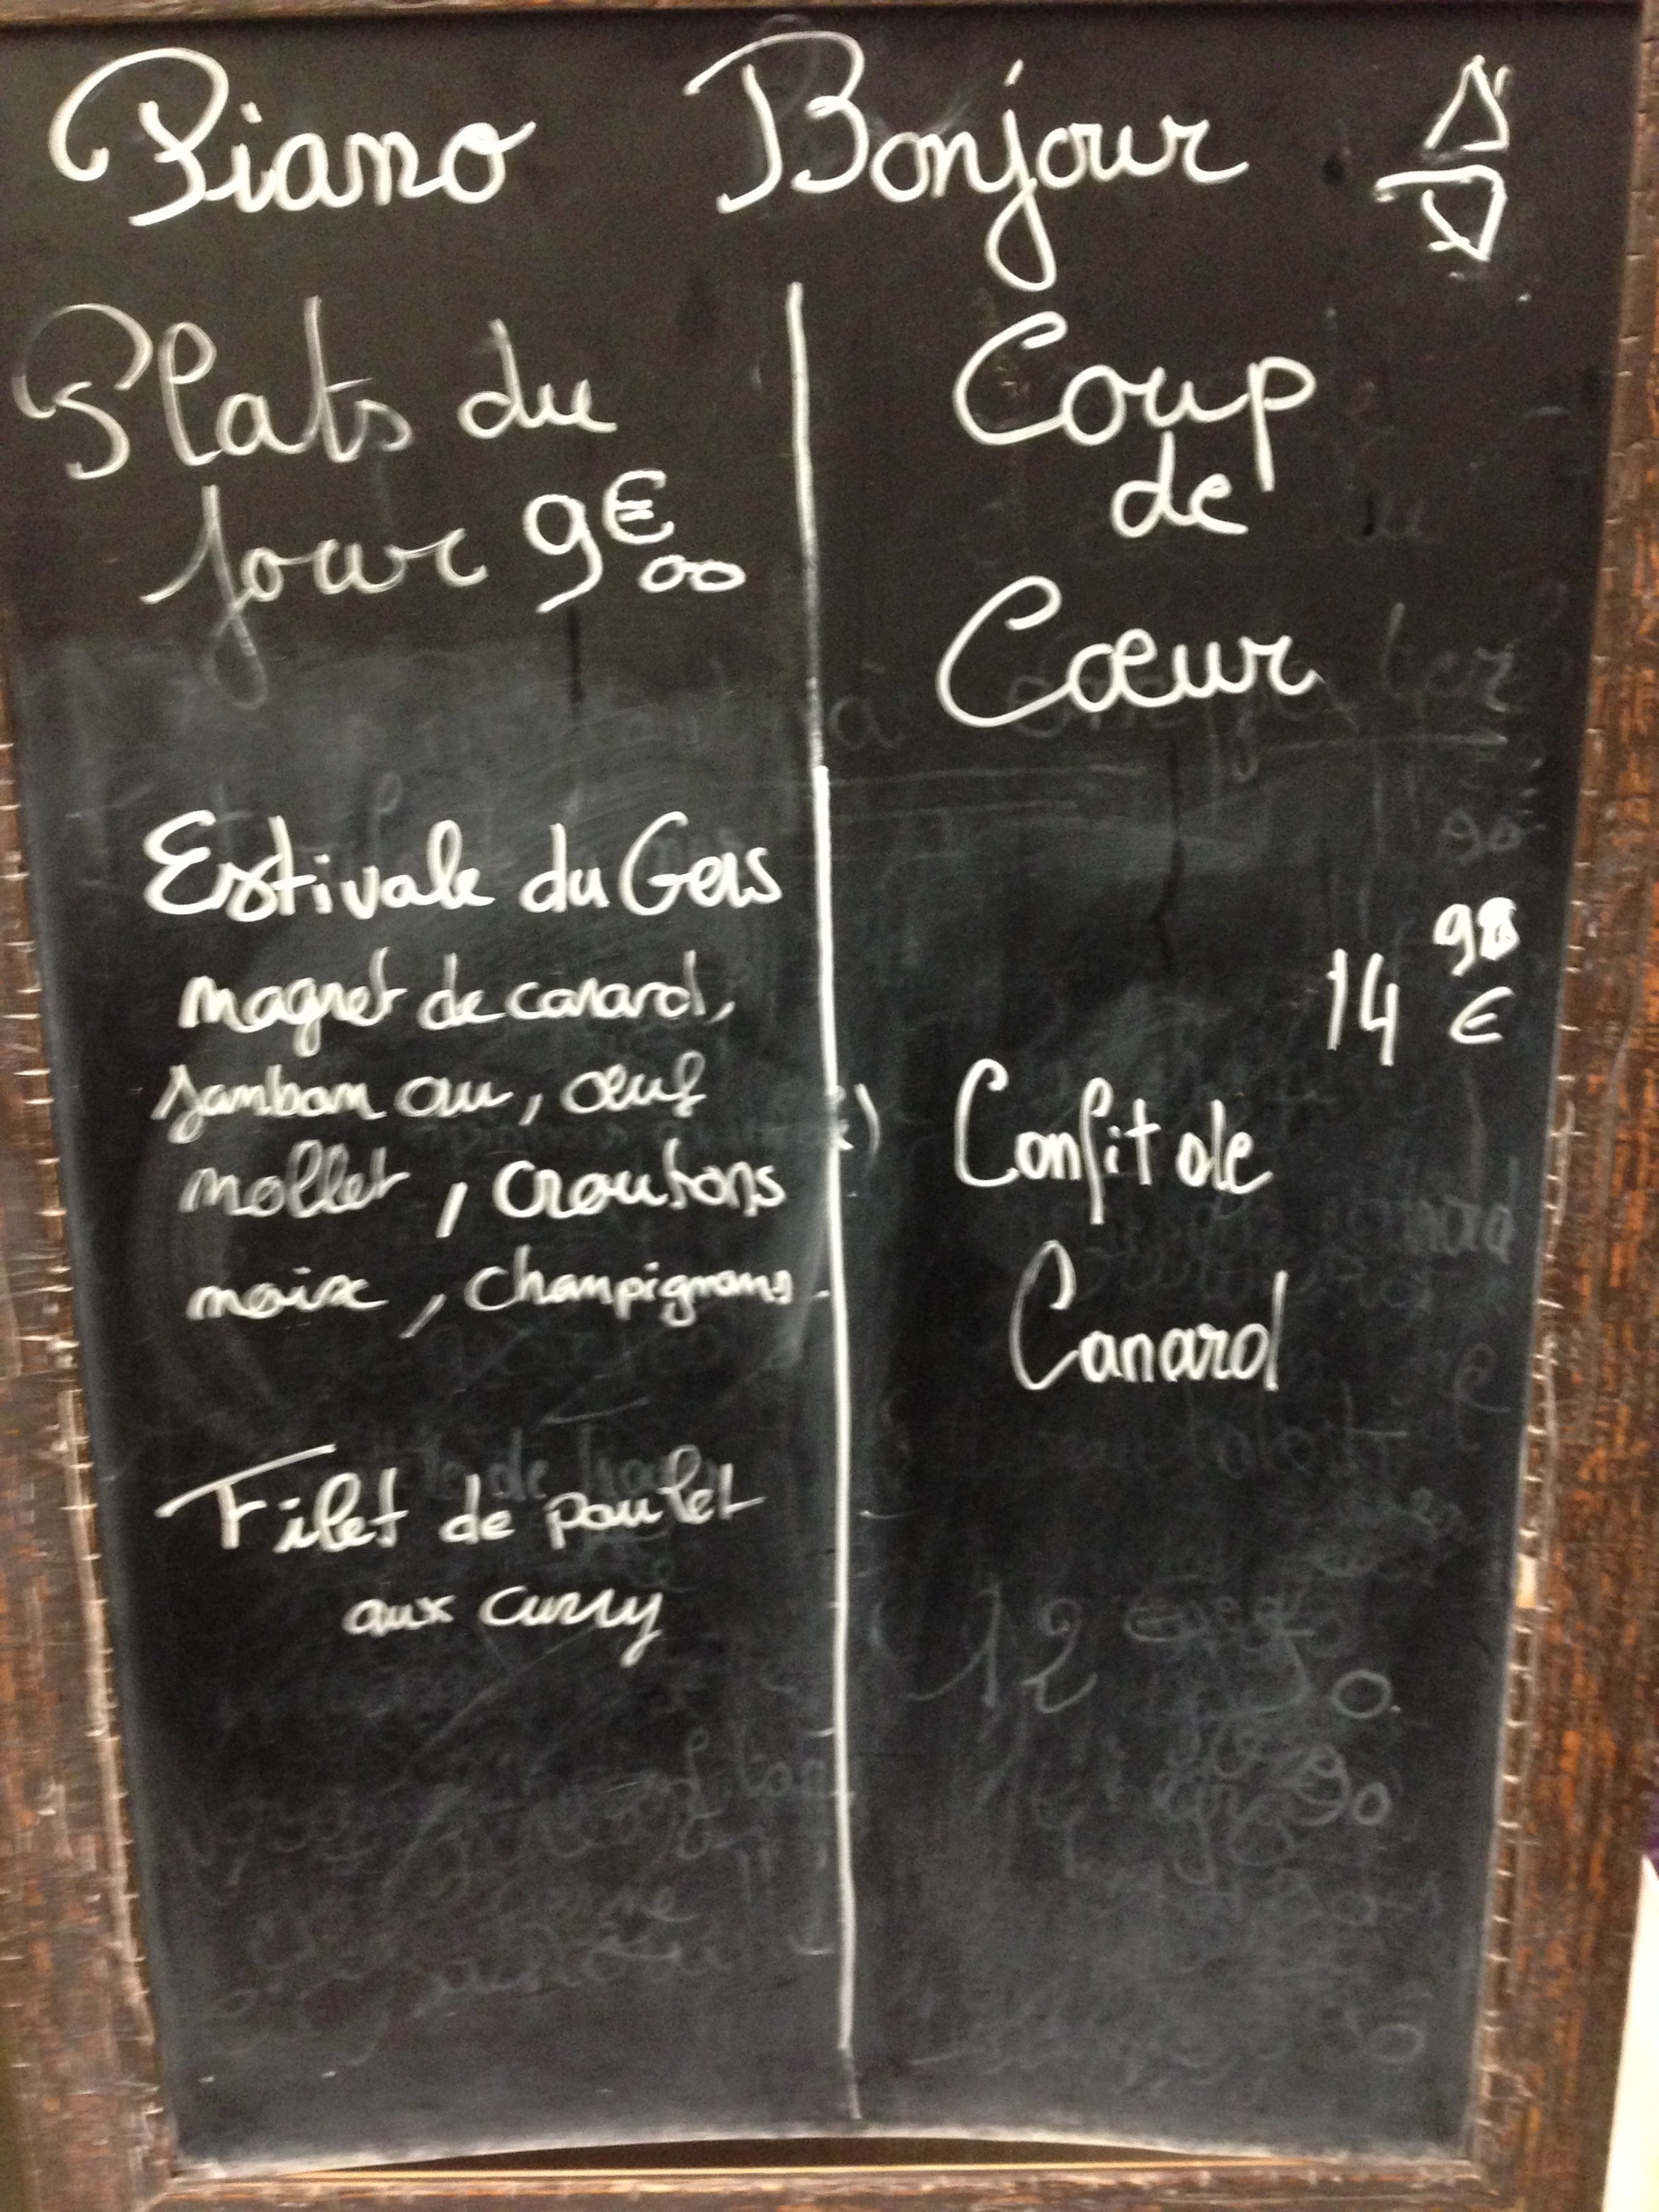 Piano Bonjour
Plats du
jour 9€00
Estivale du Gers
magret de canard,
jambon cru, œuf
mollet, croutons
noix, champignons.
Filet de poulet
aux curry
Coup
de
Cœur
14 €
Confit de
Canard